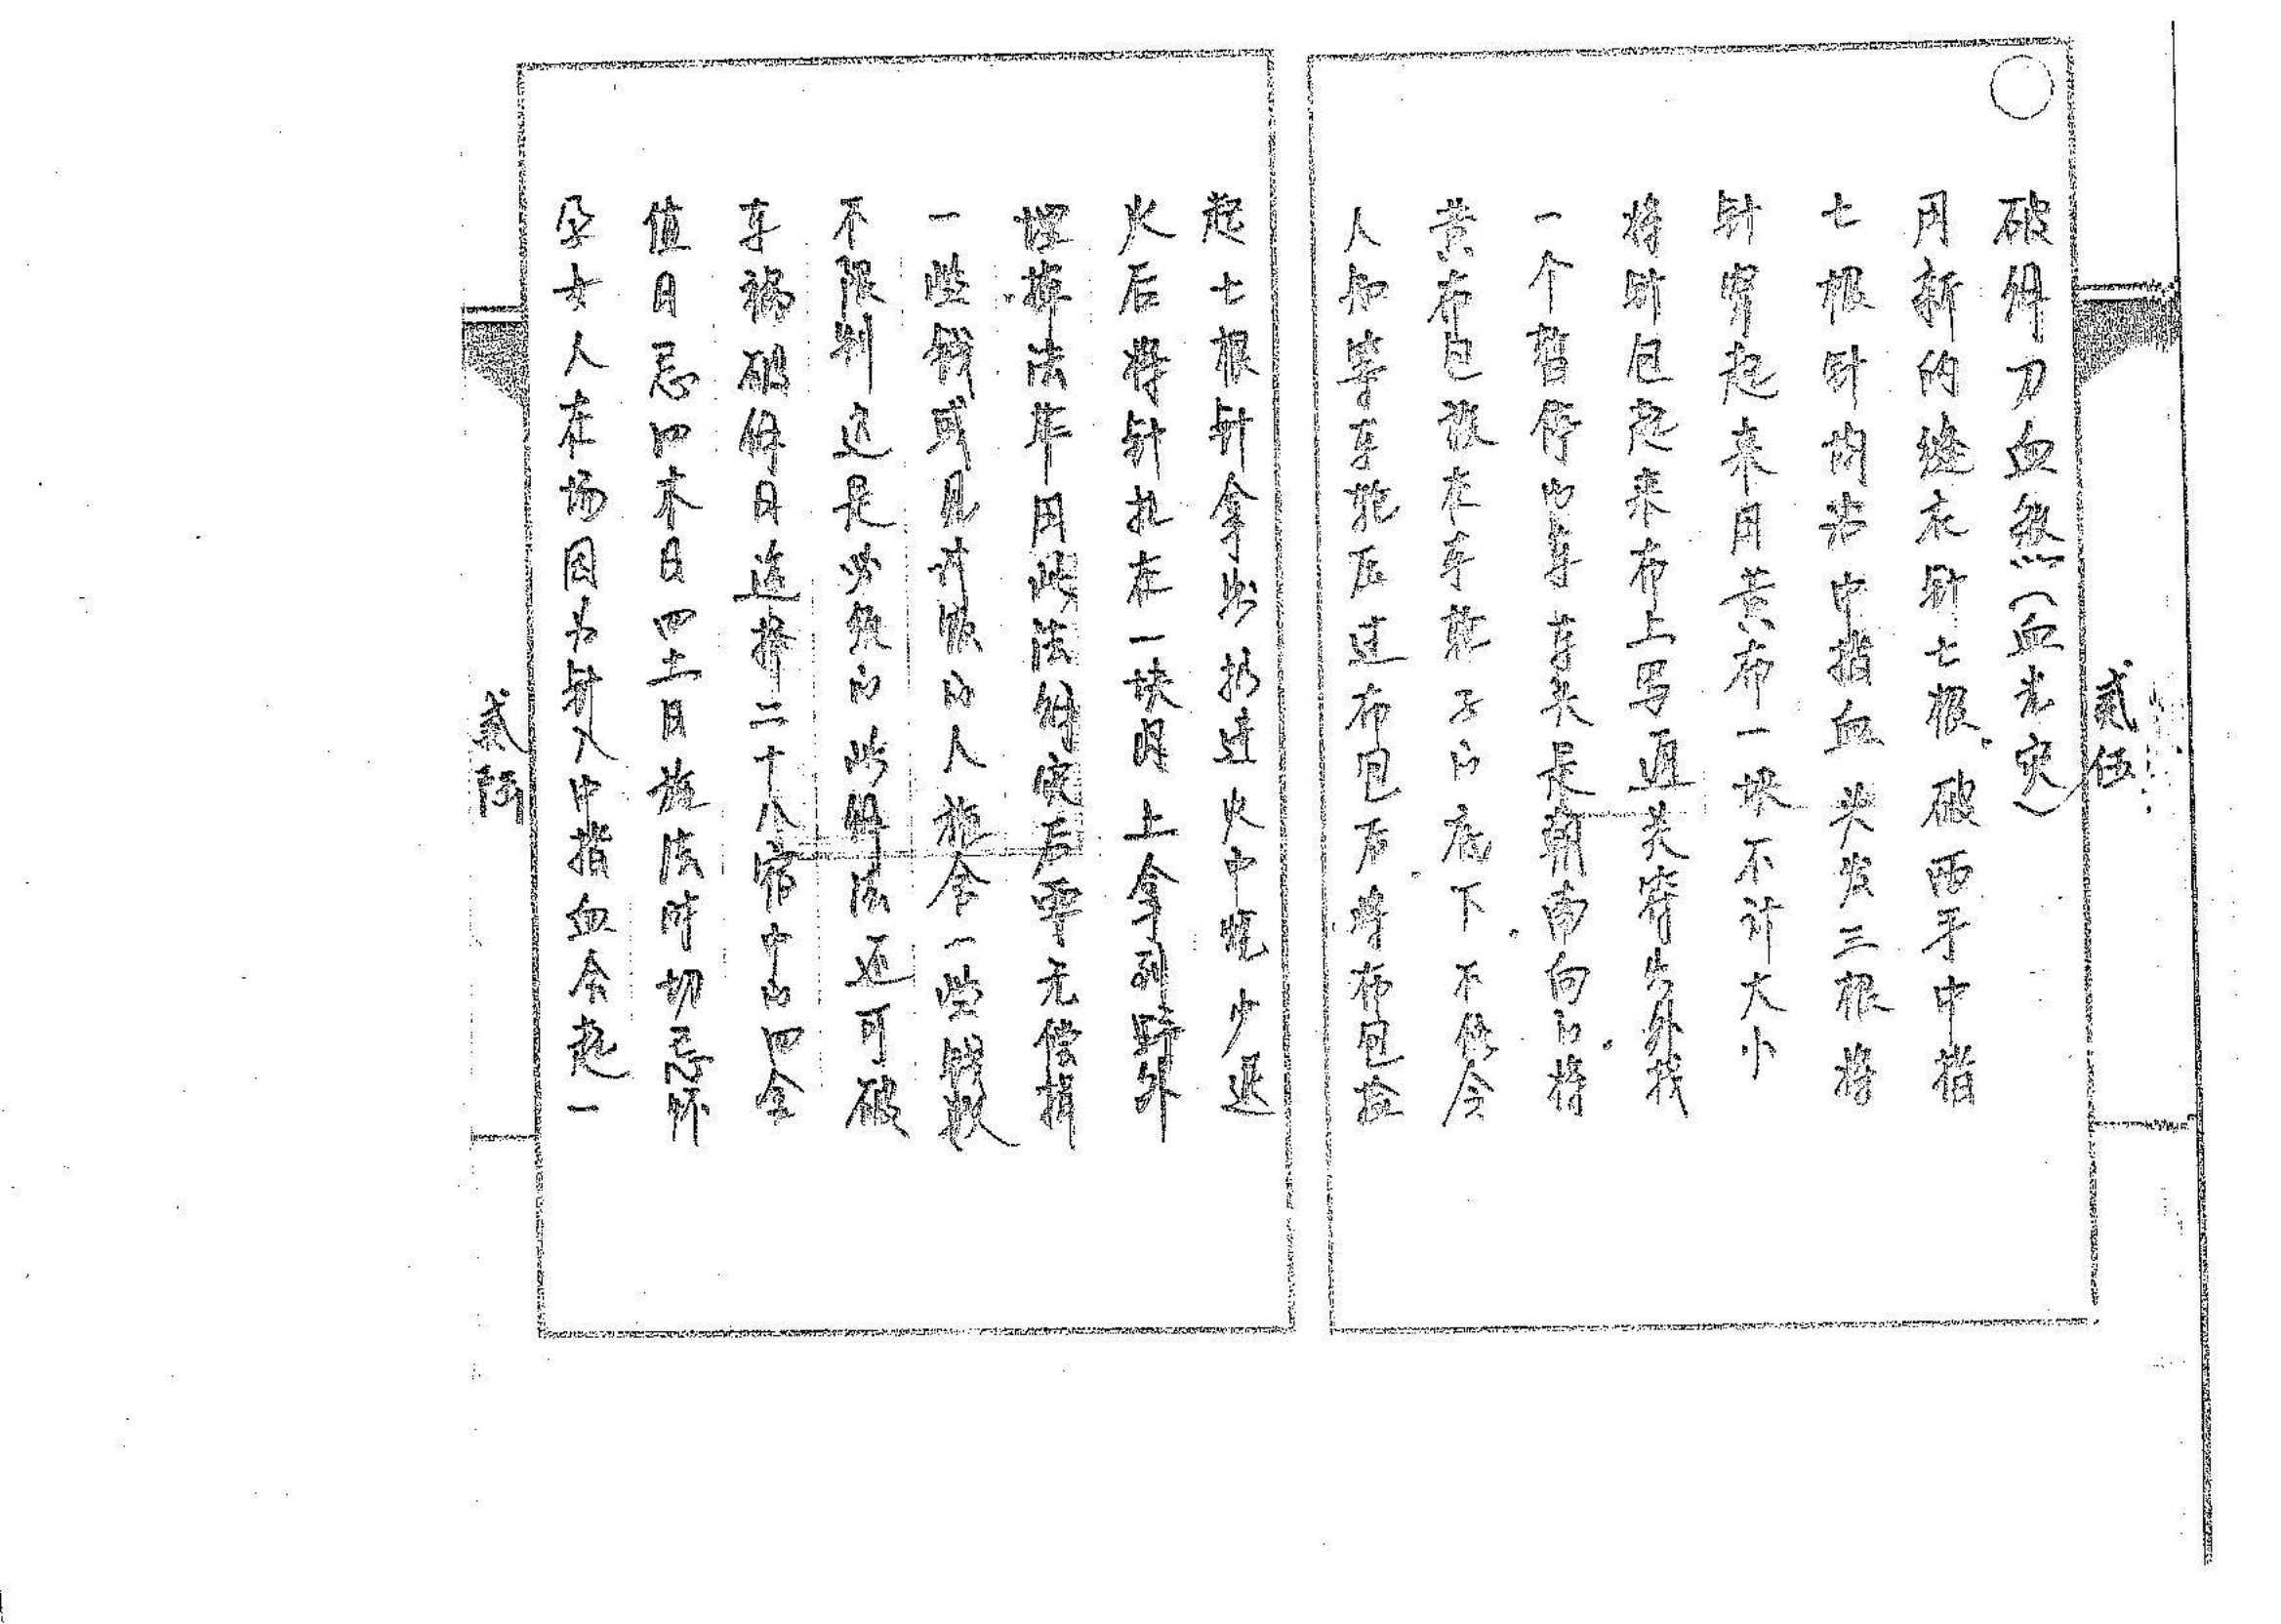 贰伍
破解刀血煞（血光灾）
用新的缝衣针七根破两手中指
七根针均沾中指血头发三根将
针穿起来用黄布一块不计大小
将针包起来布上写逗关窍先外找
一个暂停的车车头是朝南向的将
黄布包放在车轮子的底下不能令
人知等车轮压过布包后将布包捡
起七根针拿出扔进火中烧少退
火后将针扎在一块肉上拿到野外
埋掉法毕用此法解灾后要无偿捐
一些钱或见讨饭的人施舍一些钱数
不限制这是必须的此解法还可破
车祸破解日选择二十八宿中的四金
值日忌四木日四土日施法时切忌怀
孕女人在场因为针入中指血会起一
贰陆